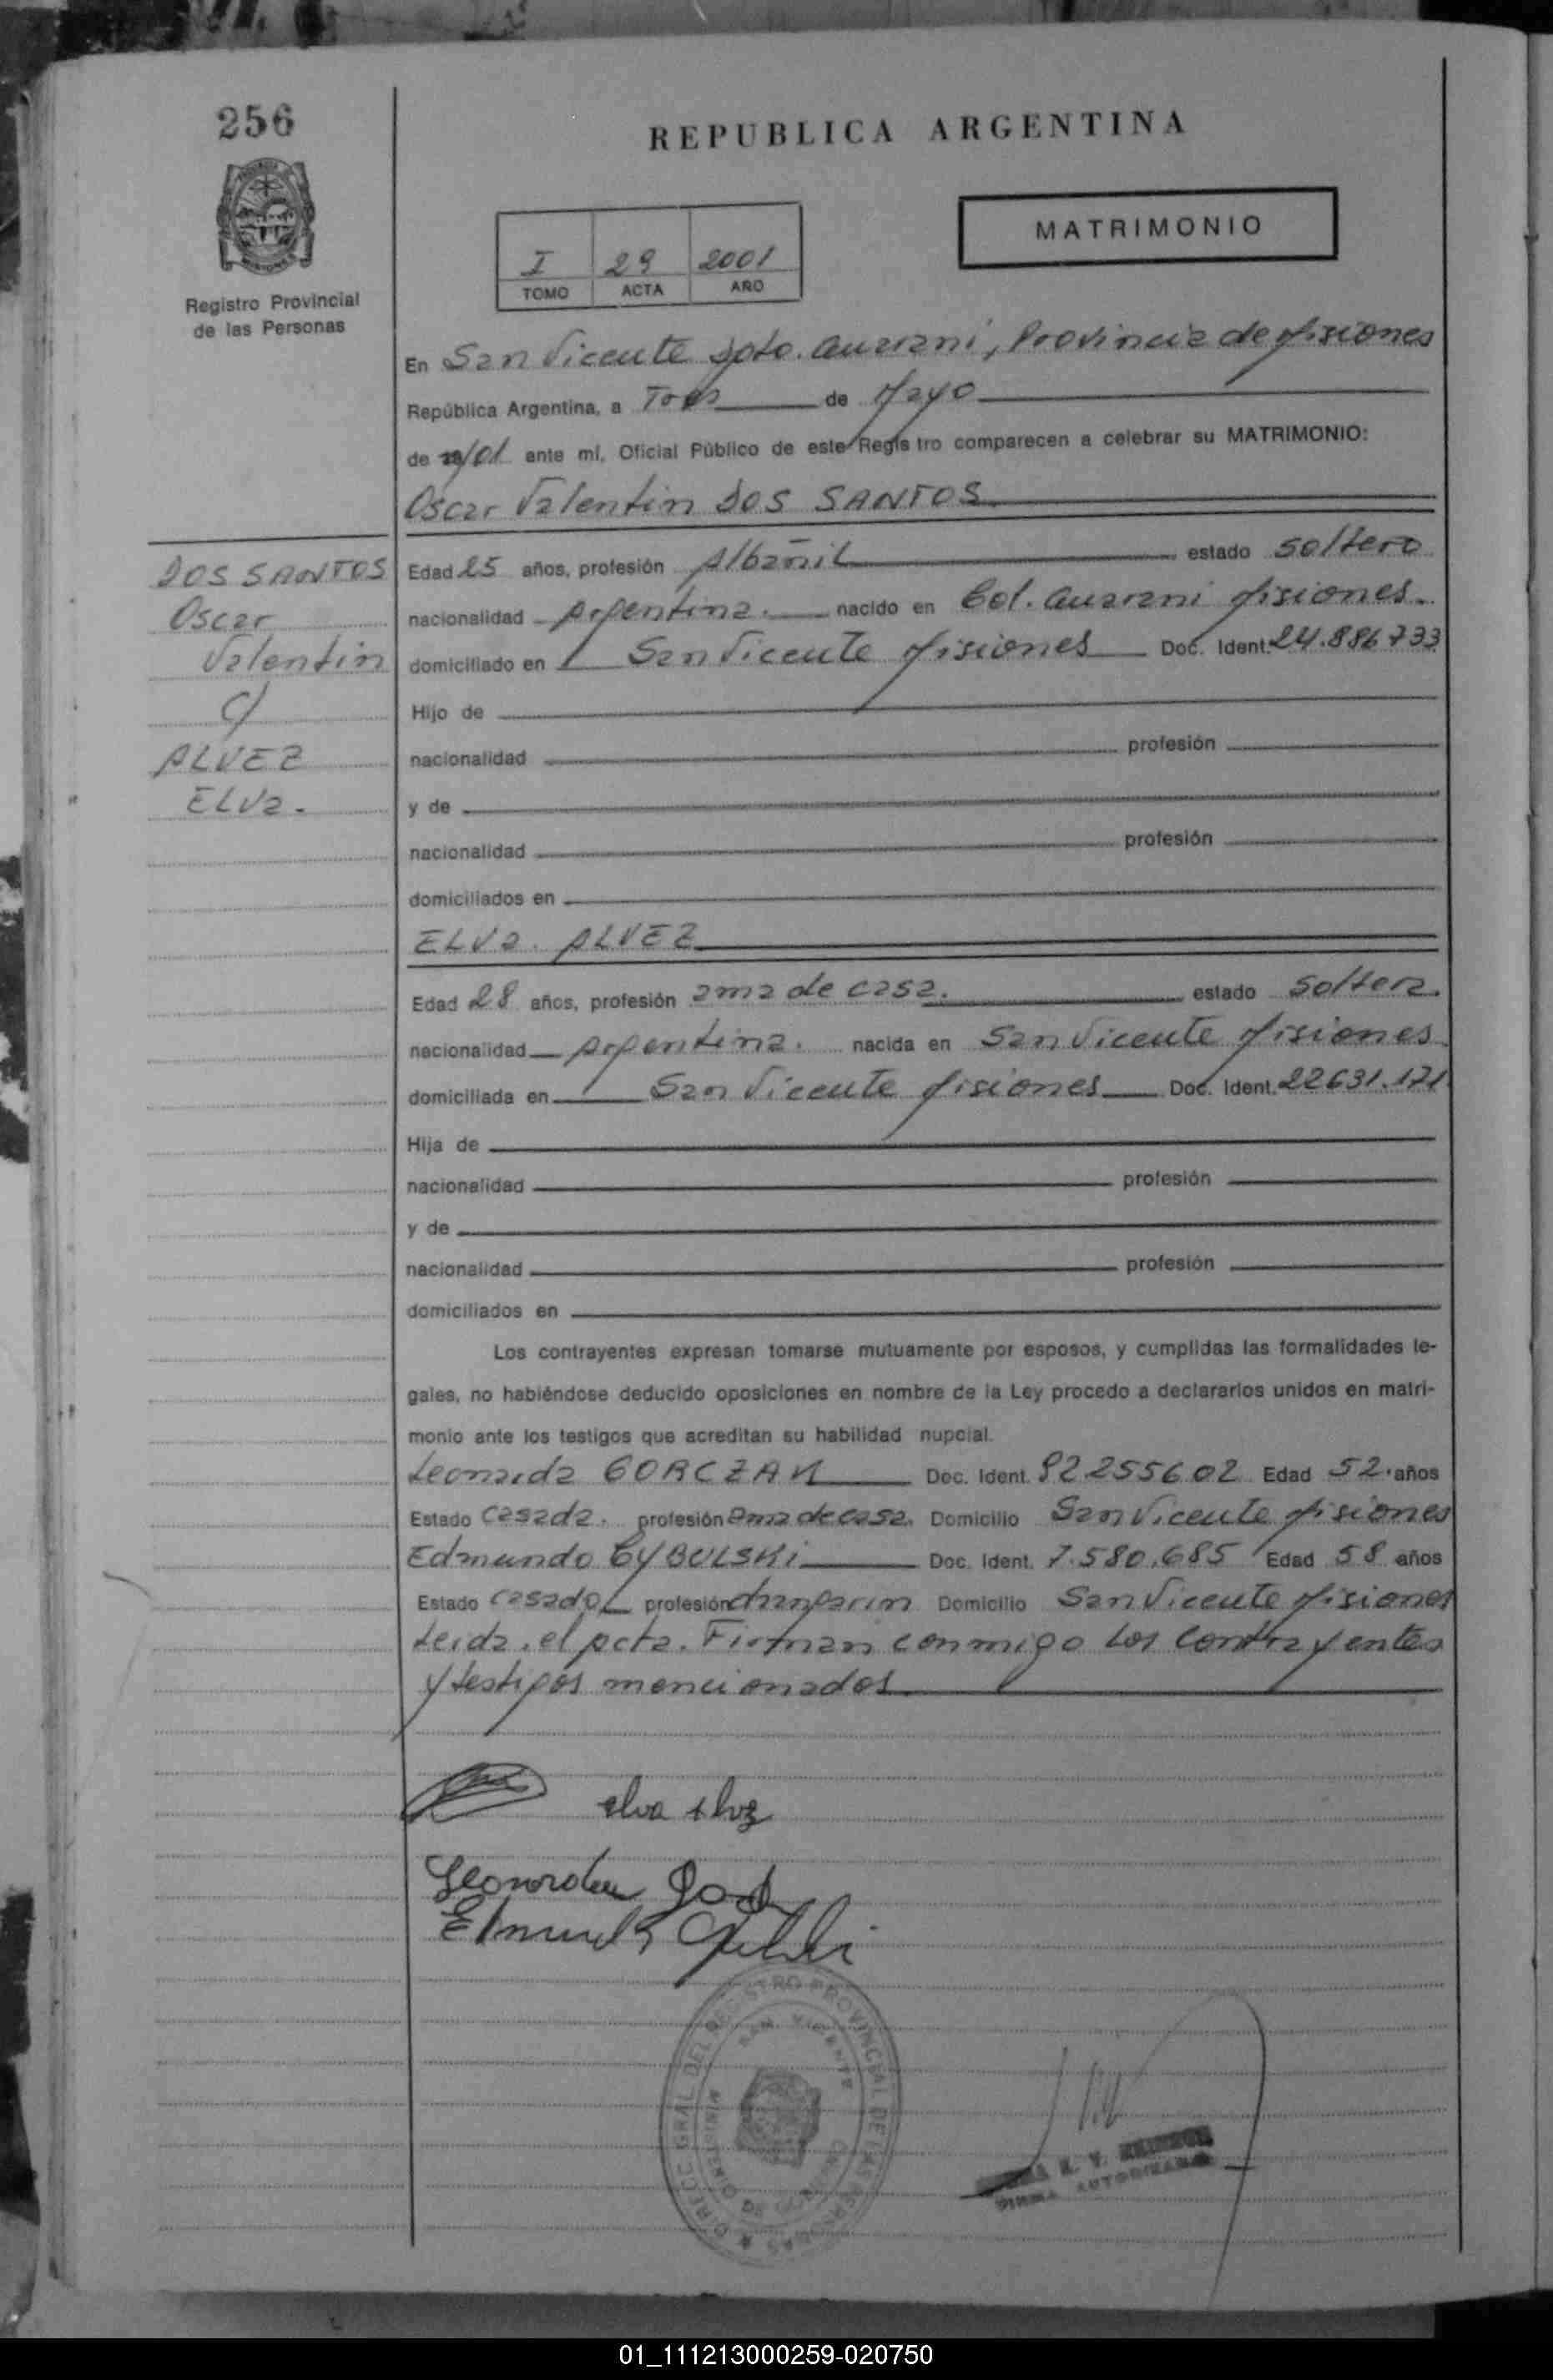 256
REPUBLICA ARGENTINA
MATRIMONIO
I 29 2001
TOMO ACTA AÑO
Registro Provincial
de las Personas
En San Vicente Dpto. Guarani, Provincia de Misiones
República Argentina, a Tres de Mayo
de /01 ante mi, Oficial Público de este Registro comparecen a celebrar su MATRIMONIO:
Oscar Valentin DOS SANTOS
DOS SANTOS
Oscar
Valentin
c/
ALVEZ
ELVa.
Edad 25 años, profesión Albañil estado soltero
nacionalidad Argentina. nacido en Col. Guarani Misiones.
domiciliado en San Vicente Misiones Doc. Ident. 24.886733
Hijo de
nacionalidad profesión
y de
nacionalidad profesión
domiciliados en
ELVa. ALVEZ
Edad 28 años, profesión ama de casa. estado soltera.
nacionalidad Argentina. nacida en San Vicente Misiones
domiciliada en San Vicente Misiones Doc. Ident. 22631.171
Hija de
nacionalidad profesión
y de
nacionalidad profesión
domiciliados en
Los contrayentes expresan tomarse mutuamente por esposos, y cumplidas las formalidades le-
gales, no habiéndose deducido oposiciones en nombre de la Ley procedo a declararlos unidos en matri-
monio ante los testigos que acreditan su habilidad nupcial.
Leonarda GORCZAK Doc. Ident. 92255602 Edad 52. años
Estado casada. profesión ama de casa. Domicilio San Vicente Misiones
Edmundo CYBULSKi Doc. Ident. 7.580.685 Edad 58 años
Estado casado profesión changarin Domicilio San Vicente Misiones
Leida. el Acta. Firman conmigo los contrayentes
y testigos mencionados
elva alvez
DIRECC GRAL DEL REGISTRO PROVINCIAL DE LAS PERSONAS
SAN VICENTE
MINISTERIO DE GOBIERNO
FIRMA AUTORIZADA
01_111213000259-020750